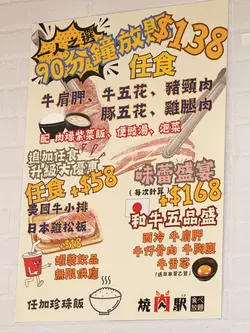 90分鐘放題$138
任食
牛肩胛、牛五花、豬頸肉
豚五花、雞腿肉
配 肉燥紫菜飯、便豉湯、泡菜
追加任食
升級大優惠
任食+$58
美國牛小排
日本雞松板
罐裝飲品
無限供應
任加珍珠飯
味蕾盛宴
(每次計算)
+$168
和牛五品盛
西冷 牛肩胛
牛仔骨肉 牛胸腹
牛舌芯
燒肉駅
食べ放題